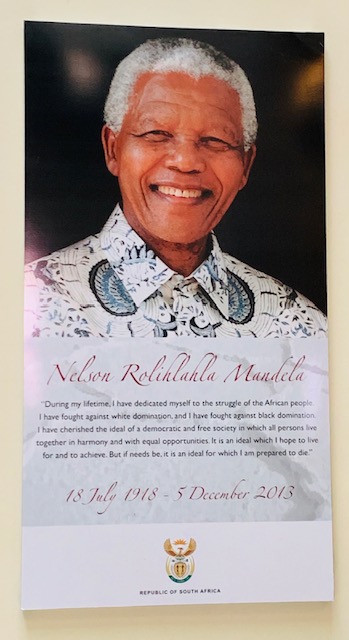 Nelson Rolihlahla Mandela
"During my lifetime, I have dedicated myself to the struggle of the African people.
I have fought against white domination, and I have fought against black domination.
I have cherished the ideal of a democratic and free society in which all persons live
together in harmony and with equal opportunities. It is an ideal which I hope to live
for and to achieve. But if needs be, it is an ideal for which I am prepared to die."
18 July 1918 - 5 December 2013
REPUBLIC OF SOUTH AFRICA